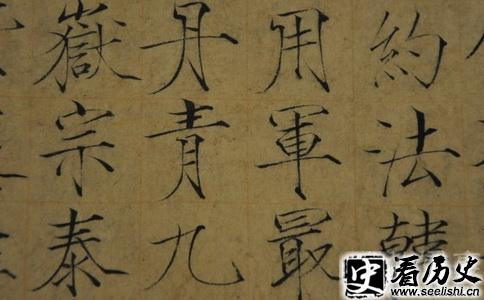 約法韓
用軍最
丹青九
嶽宗泰
史看历史
www.seelishi.cn